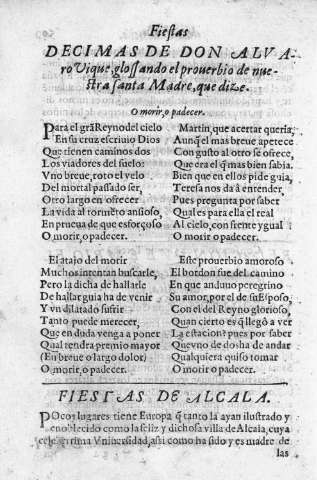 Fiestas
DECIMAS DE DON ALVA
ro Vique, glossando el prouerbio de nue-
stra santa Madre, que dize.
O morir, o padecer.
Para el grã Reyno del cielo
En su cruz escriuio Dios
Que tienen caminos dos
Los viadores del suelo:
Vno breue, roto el velo
Del mortal passado ser,
Otro largo en ofrecer
La vida al tormẽto ansioso,
En prueua de que esforçoso
O morir, o padecer.
El atajo del morir
Muchos intentan buscarle,
Pero la dicha de hallarle
De hallar guia ha de venir
Y vn dilatado sufrir
Tanto puede merecer,
Que en duda venga a poner
Qual tendra premio mayor
(En breue o largo dolor)
O morir, o padecer.
Martin, que acertar queria,
Aunq̃ el mas breue apetece
Con gusto al otro se ofrece,
Que era el q̃ mas bien sabia.
Bien que en ellos pide guia,
Teresa nos da à entender,
Pues pregunta por saber
Qual es para ella el real
Al cielo, con frente ygual
O morir, o padecer.
Este prouerbio amoroso
El bordon fue del camino
En que anduuo peregrino
Su amor, por el de su Esposo,
Con el del Reyno glorioso,
Quan cierto es q̃ llegò a ver
La estacion? pues por saber
Que vno de dos ha de andar
Qualquiera quiso tomar
O morir, o padecer.
FIESTAS DE ALCALA.
POcos lugares tiene Europa q̃ tanto la ayan ilustrado y
ennoblecido como la feliz y dichosa villa de Alcala, cuya
Vniuersidad, assi como ha sido y es madre de
las